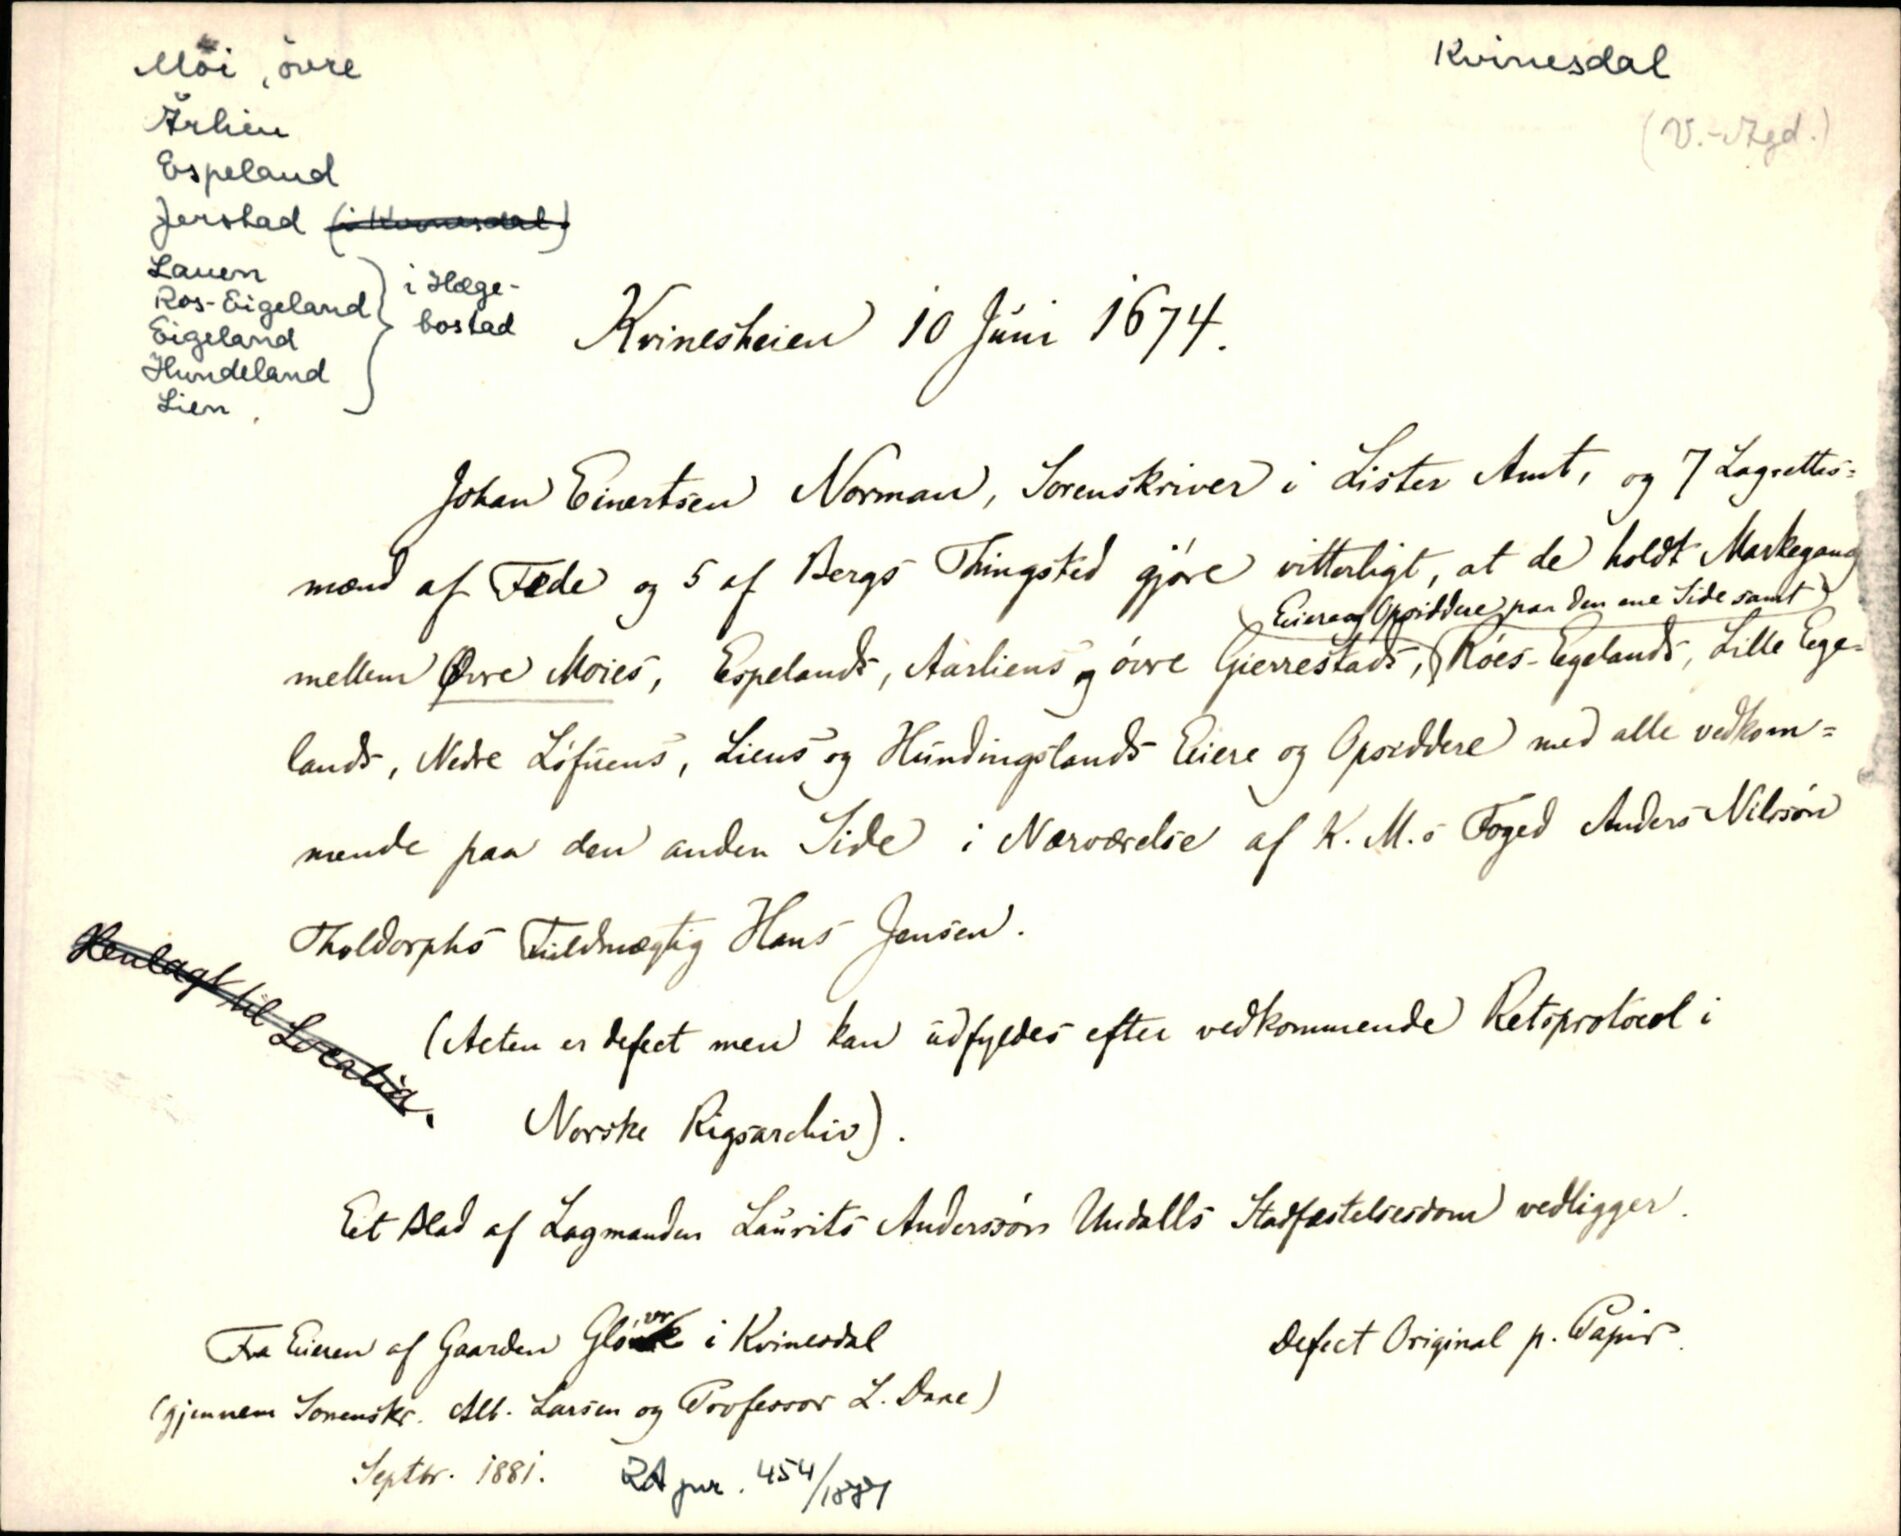 Möi, övre
Kvinesdal
(V.-Agd.)
Årlien
Espeland
Jerstad (i Kvinesdal)
Lauen
Ros-Eigeland
Eigeland
Hundeland
Lien
i Hæge-
bostad
Kvinesheien 10 Juni 1674.
Johan Einertsen Norman, Sorenskriver i Lister Amt, og 7 Lagrettes=
mænd af Fede og 5 af Bergs Thingsted gjøre vitterligt, at de holdt Markegang
Eiere og Opsiddere paa den ene Side samt
mellem Øvre Moies, Espelands, Aarliens og övre Gierrestads, Röes-Egelands, Lille Ege=
lands, Nedre Löfuens, Liens og Hundingslands Eiere og Opsiddere med alle vedkom=
mende paa den anden Side i Nærværelse af K. M.s Foged Anders Nilssön
Tholdorphs Fuldmægtig Hans Jensen.
Henlagt til Localia.
(Acten er defect men kan udfyldes efter vedkommende Retsprotocol i
Norske Rigsarchiv).
Eet Blad af Lagmanden Laurits Anderssön Undalls Stadfæstelsesdom vedligger.
Fra Eieren af Gaarden Glövre i Kvinesdal
Defect Original p. Papir.
(gjennem Sorenskr. Alb. Larsen og Professor L. Daae)
Septbr. 1881.
RA jnr. 454/1881